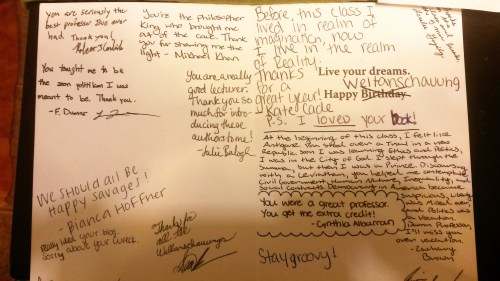 you are seriously the
best professor I've ever
had. Thank you!
You taught me to be
the
politician I was
meant to be. Thank you.
You're the philosopher
king who brought me
out of the cave. Thank
you for showing me the
light - Michael Khan
You are a really
good lecturer.
Thank you so
much for intro-
ducing these
authors to me!
- Julie Balogh
We should all be
Happy savages!
- Bianca Hoffner
Really liked your blog.
Sorry about your
Thanks for
all the
Weltanschauungs
Before, this class I
lived in realm of
imagination, now
I live in the realm
of Reality.
Thanks
for a
great year!
- Kate Cade
P.S. I loved your book!
Live your dreams.
Weltanschauung
Happy Birthday.
At the beginning of this class, I felt like
Antigone.
Republic. Soon I was learning Ethics and Politics,
I was in the City of God. I slept through the
Summa, but then I was in Prince. Discoursing
with a Leviathan, you helped me contemplate
Civil Government, Human Nature, Inequality, and
Social Contracts. Democracy in America became
You were a great professor.
You get the extra credit!
- Cynthia Albarran
Politics
a Vocation.
I'll miss you
over vacation.
- Zachary
Brown
Stay groovy!